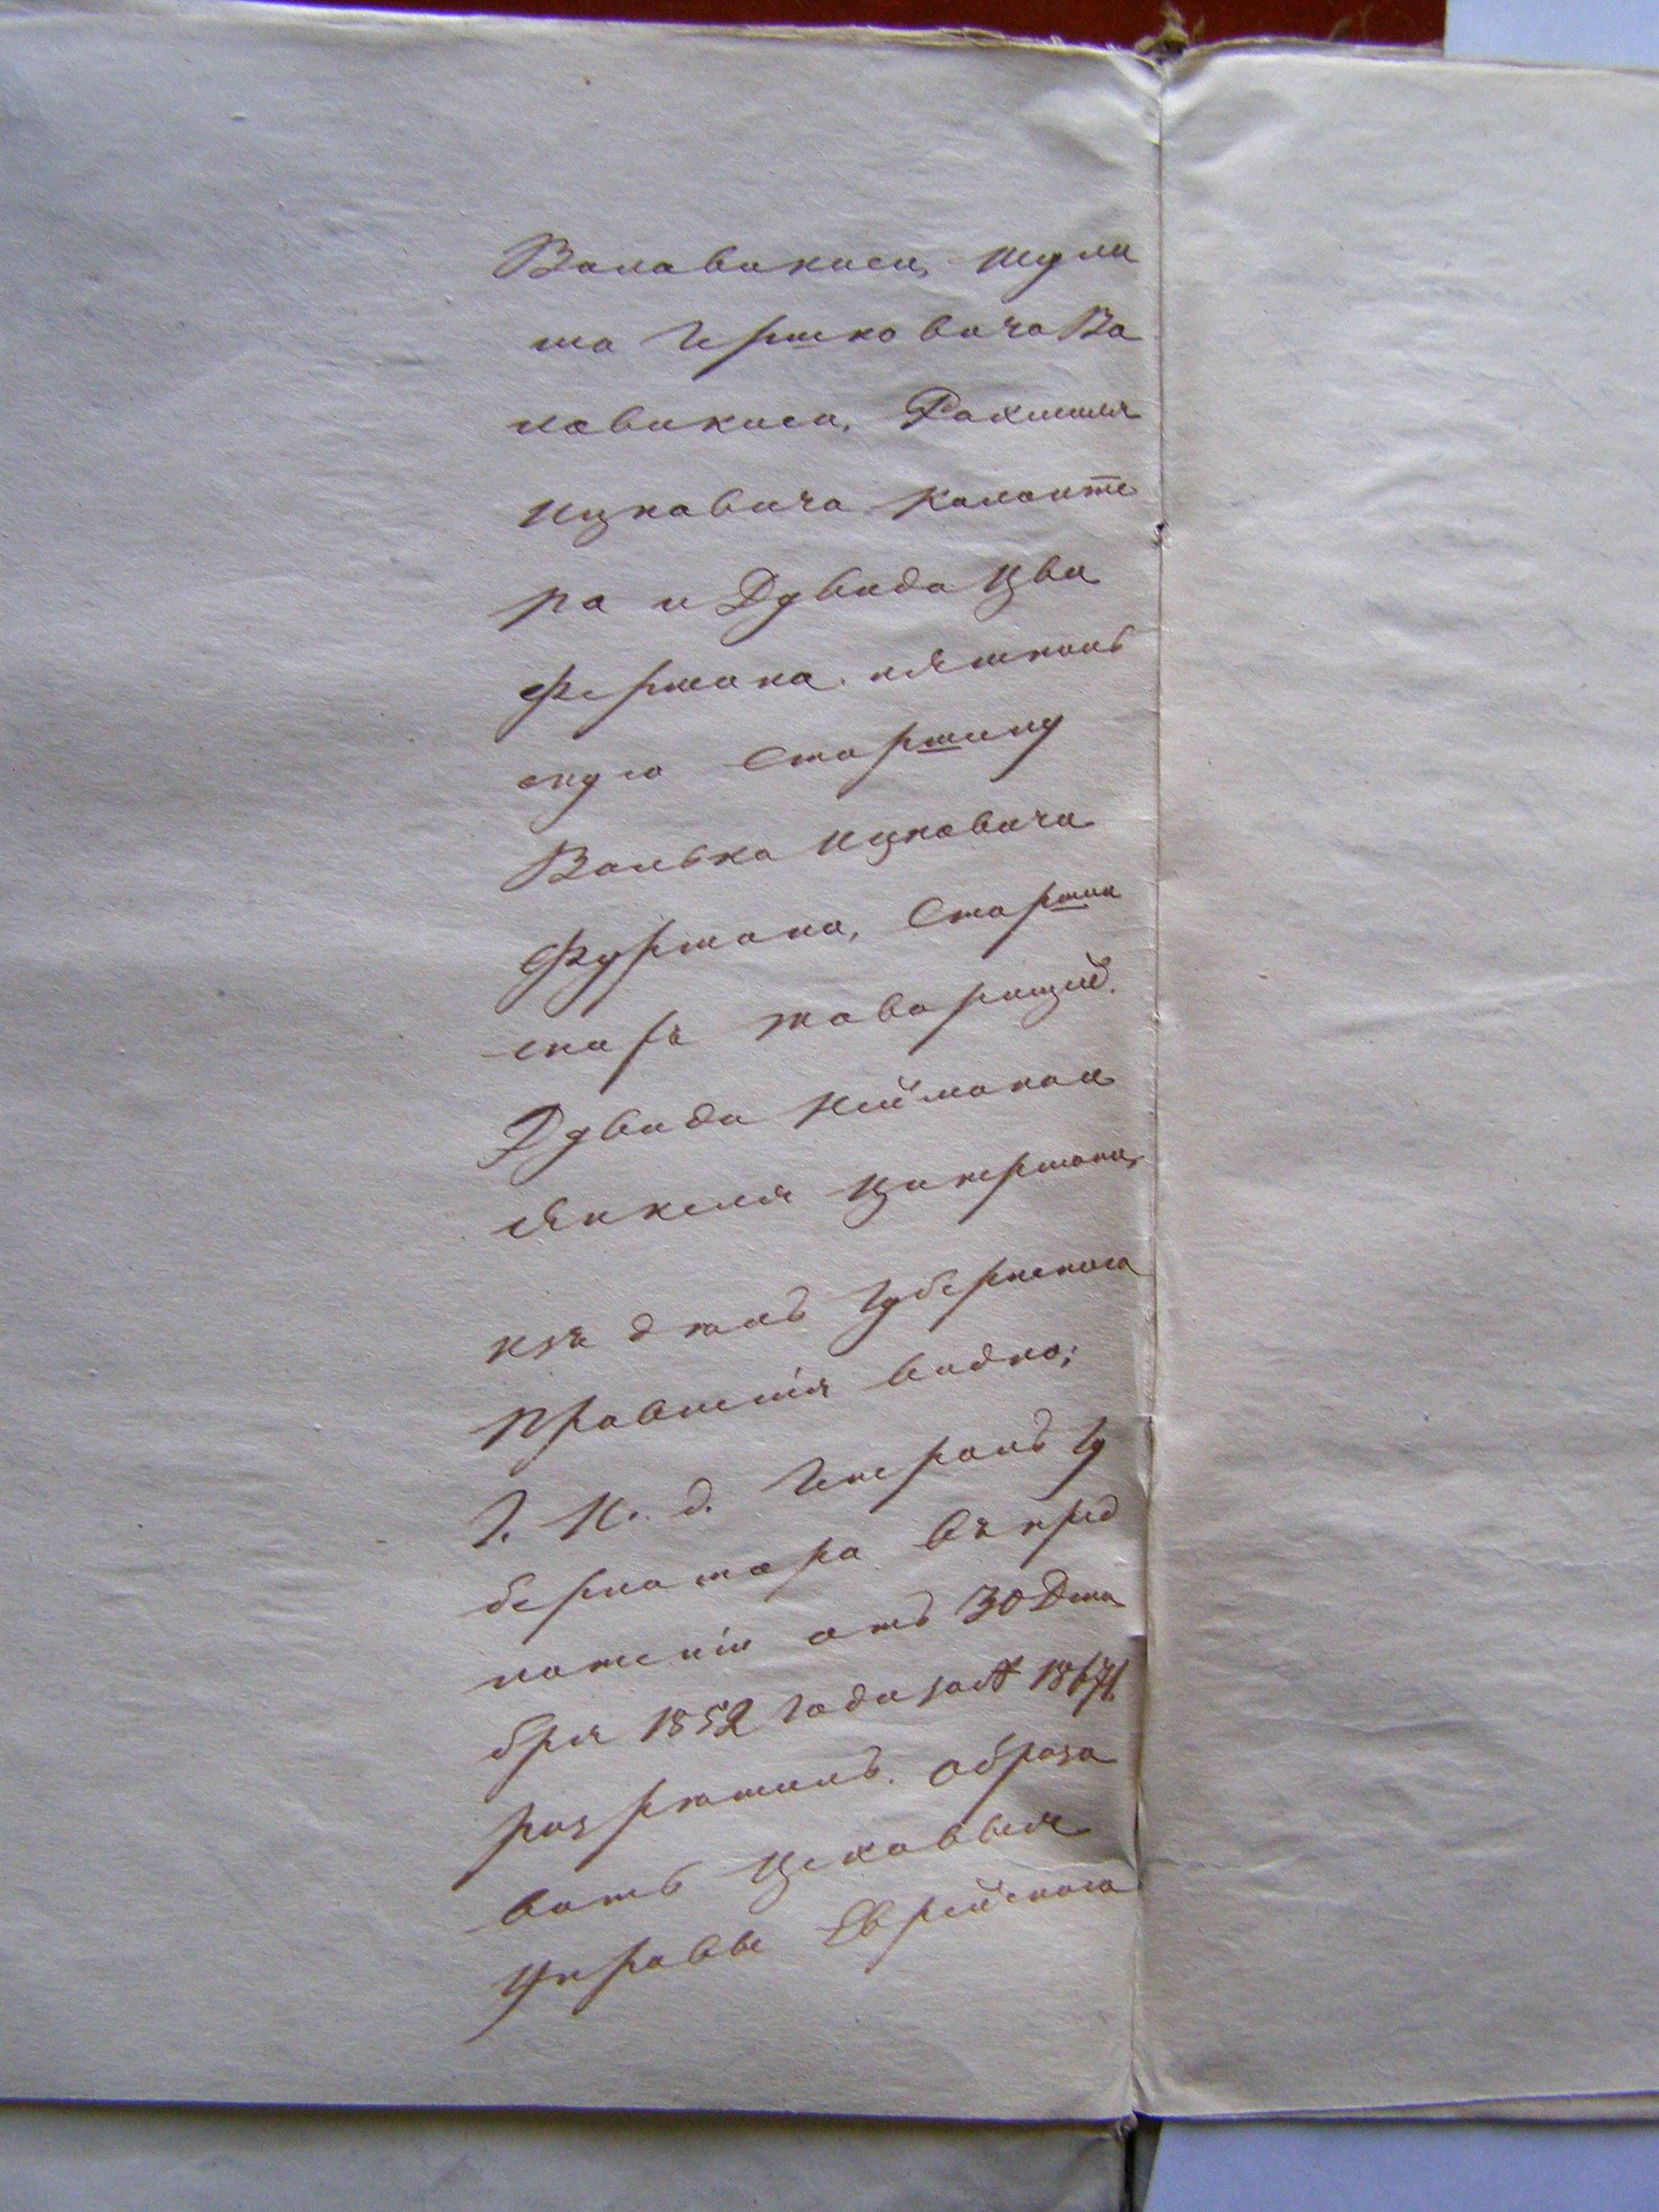 Воловикиса, Шулы
ма Гершковича Во
ловикиса, Рахмиля
ИцковичаКоломие
ра и Дувида Цви
фермана. ремеслен
скую Старшину
Волька Ицковича
Фурмана, Старшин
скаго товарищей.
Дувида Неймана и
Янкеля Цикермана,
изъ дѣлъ Губернскаго
Правленія видно;
Г. И. д. Генералъ Гу
бернатора въ пред
ложеніи отъ 30 Дека
бря 1852 года за № 1867
разрѣшилъ образо
вать цеховыя
Управы Еврейскаго